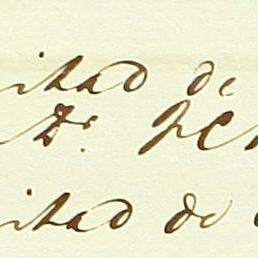 itad de
Dr.
itad de